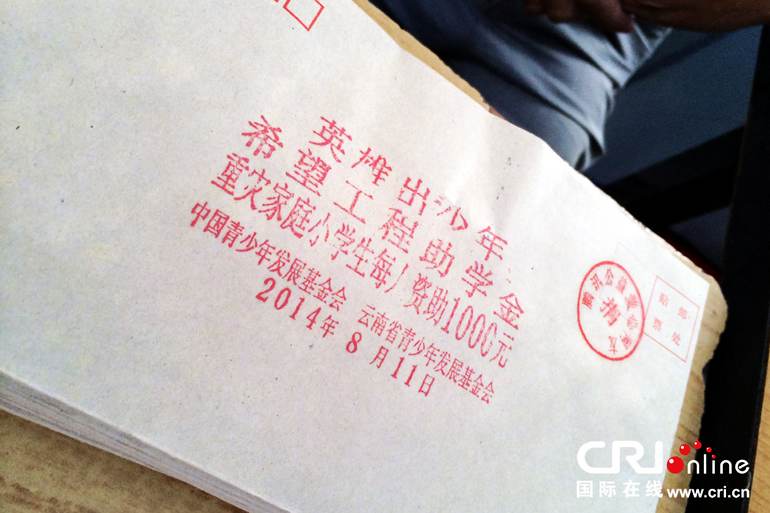 英雄出少年
希望工程助学金
重灾家庭小学生每人资助1000元
中国青少年发展基金会 云南省青少年发展基金会
2014年8月11日
贴邮
票处
CRIonline
国际在线 www.cri.cn